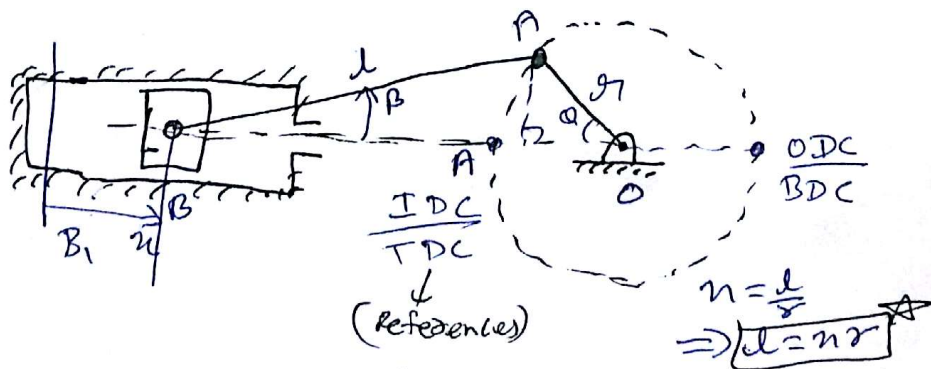 A
l
β
r
θ
h
A
O
ODC
BDC
B
B₁
x
IDC
TDC
(References)
n = l/r
⇒ l = nr